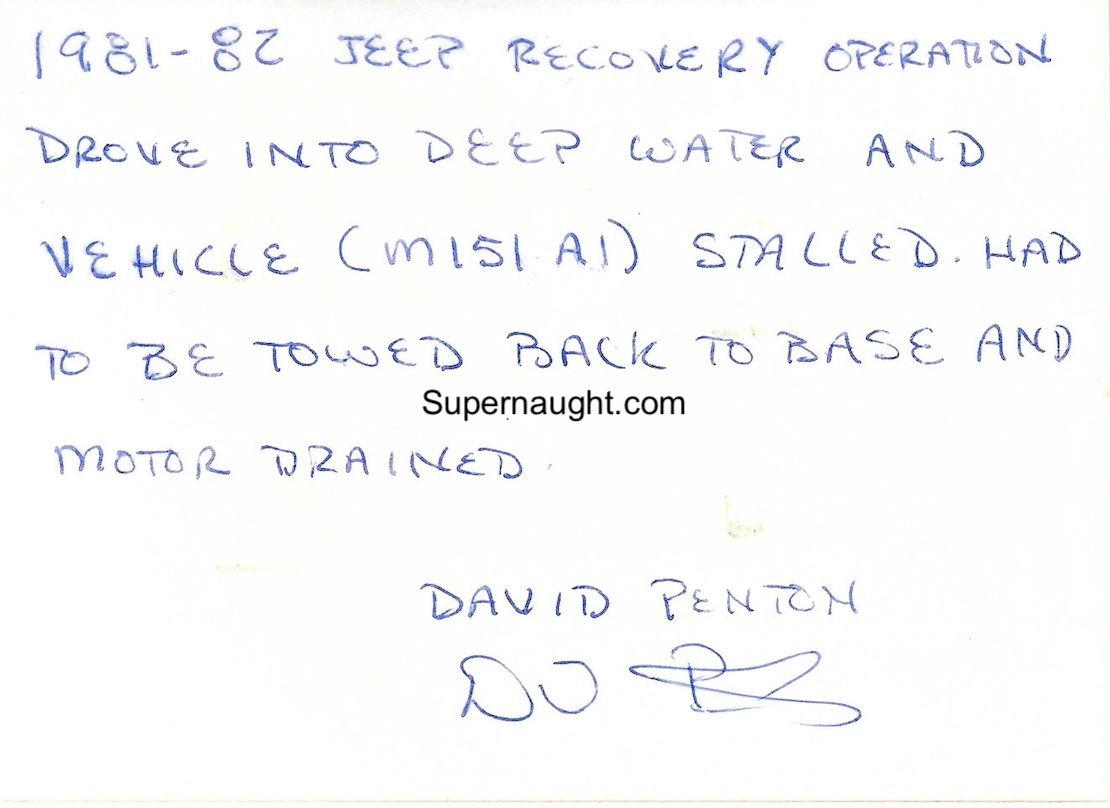 1981-82 JEEP RECOVERY OPERATION
DROVE INTO DEEP WATER AND
VEHICLE (M151 A1) STALLED. HAD
TO BE TOWED BACK TO BASE AND
Supernaught.com
MOTOR DRAINED.
DAVID PENTON